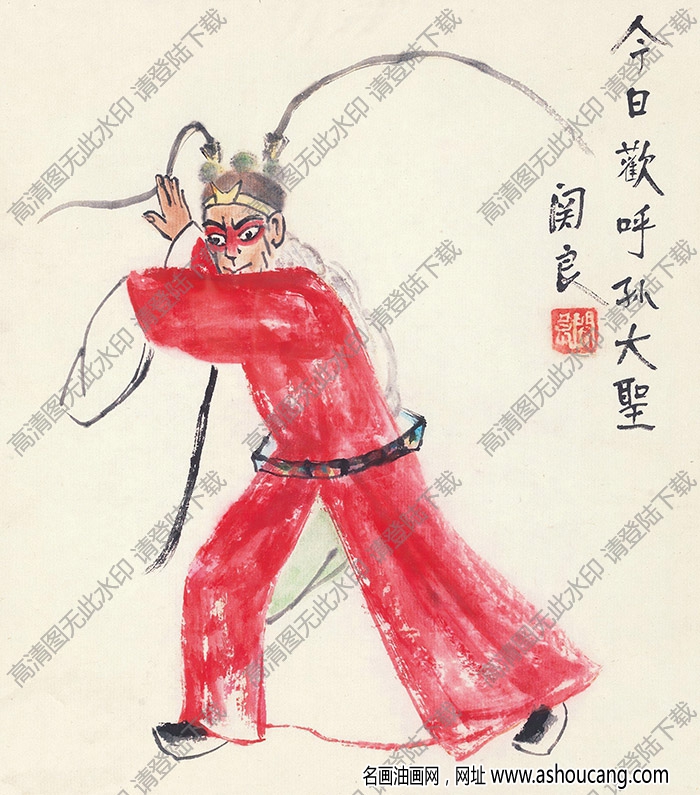 今日歡呼孫大聖
関良
高清图无此水印 请登陆下载
高清图无此水印 请登陆下载
高清图无此水印 请登陆下载
高清图无此水印 请登陆下载
高清图无此水印 请登陆下载
高清图无此水印 请登陆下载
高清图无此水印 请登陆下载
高清图无此水印 请登陆下载
高清图无此水印 请登陆下载
名画油画网，网址 www.ashoucang.com